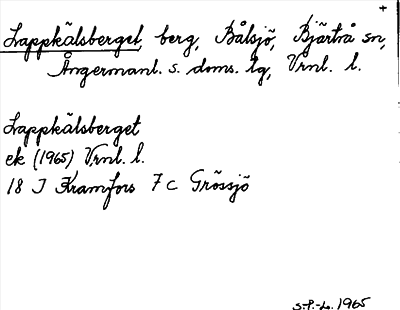 +
Lappkälsberget, berg, Bålsjö, Bjärtrå sn,
Ångermanl. s. doms. lg, Vrnl. l.
Lappkälsberget
ek (1965) Vrnl. l.
18 I Kramfors 7 c Grössjö
S.P.-L. 1965